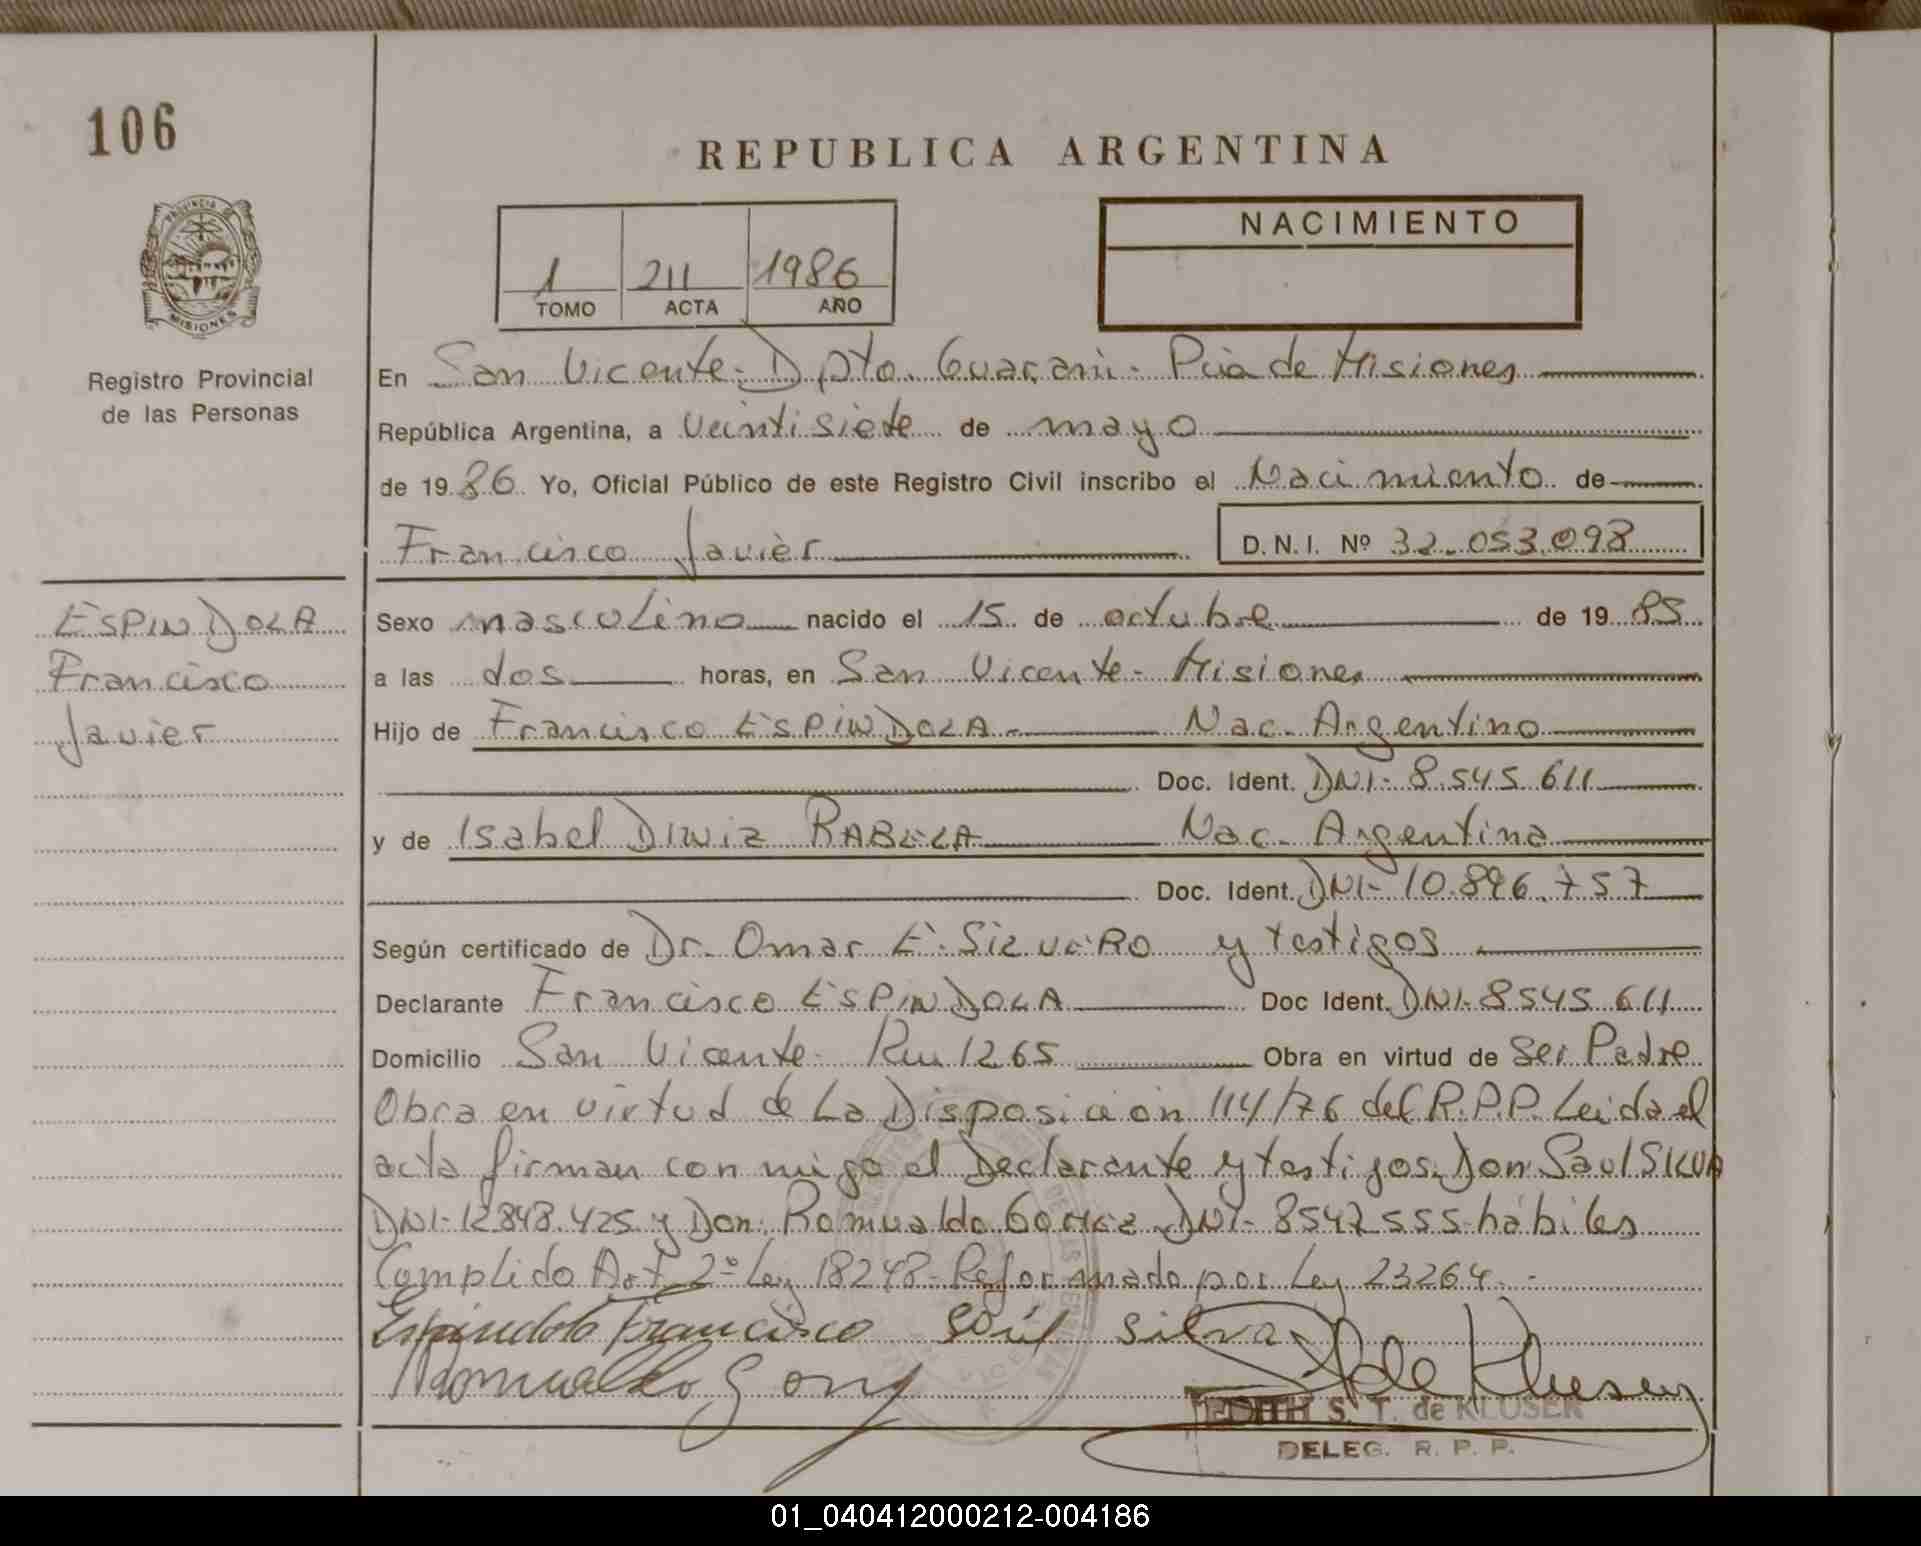 106
REPUBLICA ARGENTINA
PROVINCIA DE
MISIONES
Registro Provincial
de las Personas
1 211 1986
TOMO ACTA AÑO
NACIMIENTO
En San Vicente - Dpto. Guarani - Pcia de Misiones
República Argentina, a veintisiete de mayo
de 1986 Yo, Oficial Público de este Registro Civil inscribo el Nacimiento de
Francisco Javier D.N.I. Nº 32.053.098
ESPINDOLA
Francisco
Javier
Sexo masculino nacido el 15 de octubre de 1985
a las dos horas, en San Vicente - Misiones
Hijo de Francisco ESPINDOLA - Nac. Argentino
Doc. Ident. DNI- 8.545.611
y de Isabel DINIZ RABELA Nac. Argentina
Doc. Ident. DNI- 10.896.757
Según certificado de Dr. Omar E. SILVERO y testigos
Declarante Francisco ESPINDOLA Doc Ident. DNI-8545.611
Domicilio San Vicente - Km 1265 Obra en virtud de Ser Padre
Obra en virtud de La Disposición 114/76 del R.P.P. Leida el
acta firman con migo el Declarante y testigos. Don Saul SILVA
DNI-12.848.425 y Don Romualdo GOMEZ DNI- 8547.555 hábiles
Complido Art 2º Ley 18248 - Reformado por Ley 23264 -
Espindola Francisco Saúl Silva
Romualdo
EDITH S. T. de KLUSER
DELEG. R. P. P.
01_040412000212-004186